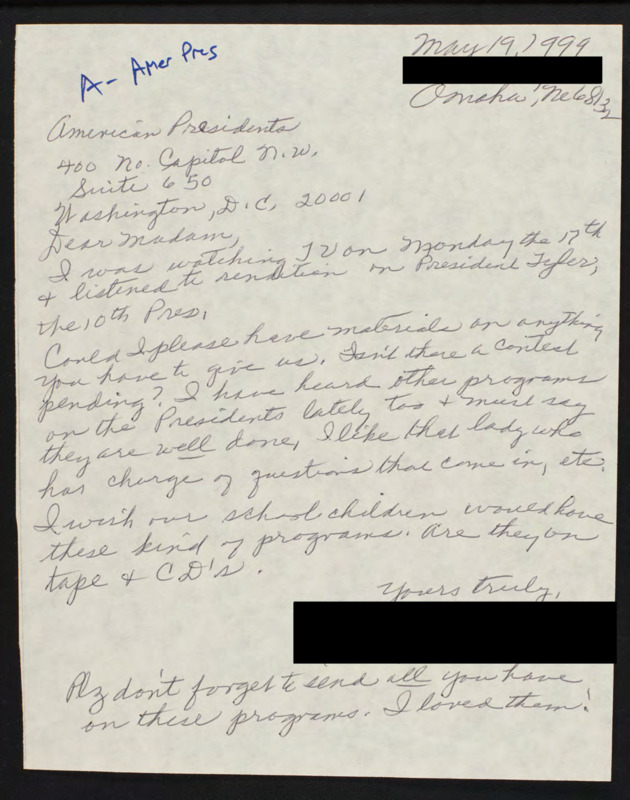 A- Amer Pres
May 19, 1999
Omaha, Ne 68132
American Presidents
400 No. Capitol N.W.
Suite 650
Washington, D.C. 20001
Dear Madam,
I was watching TV on Monday the 17th
& listened to rendition on President Tyler,
the 10th Pres.
Could I please have materials on anything
you have to give us. Isn't there a contest
pending? I have heard other programs
on the Presidents lately too & must say
they are well done, I like that lady who
has charge of questions that come in, etc.
I wish our school children would have
these kind of programs. Are they on
tape & CD's.
Yours truly,
Plz don't forget to send all you have
on these programs. I loved them!